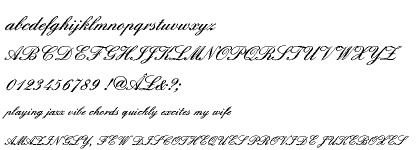 abcdefghijklmnopqrstuvwxyz
ABCDEFGHIJKLMNOPQRSTUVWXYZ
0123456789 !@ÂŁ&?;
playing jazz vibe chords quickly excites my wife
AMAZINGLY, FEW DISCOTHEQUES PROVIDE JUKEBOXES